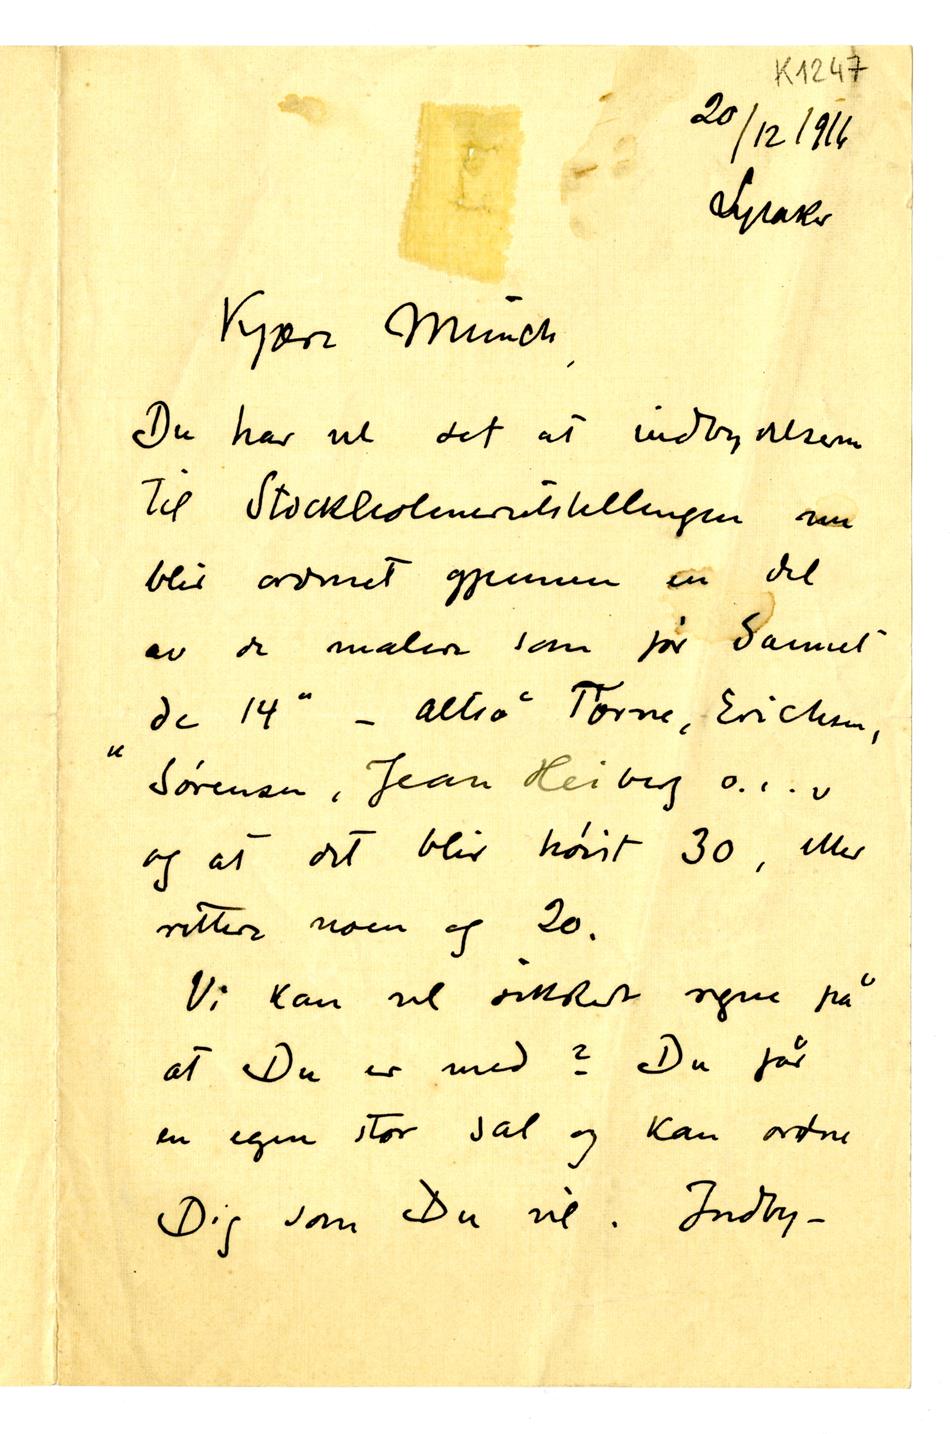 K1247
20/12 1916
Lysaker
Kjære Munch,
Du har vel set at indbydelserne
til Stockholmerutstillingen nu
blir ordnet gjennem en del
av de malere som før dannet
„de 14“ – altså Torne, Erichsen,
Sørensen, Jean Heiberg o.s.v
og at det blir høist 30, eller
rettere noen og 20.
Vi kan vel sikkert regne på
at Du er med? Du får
en egen stor sal og kan ordne
Dig som Du vil. Indby-